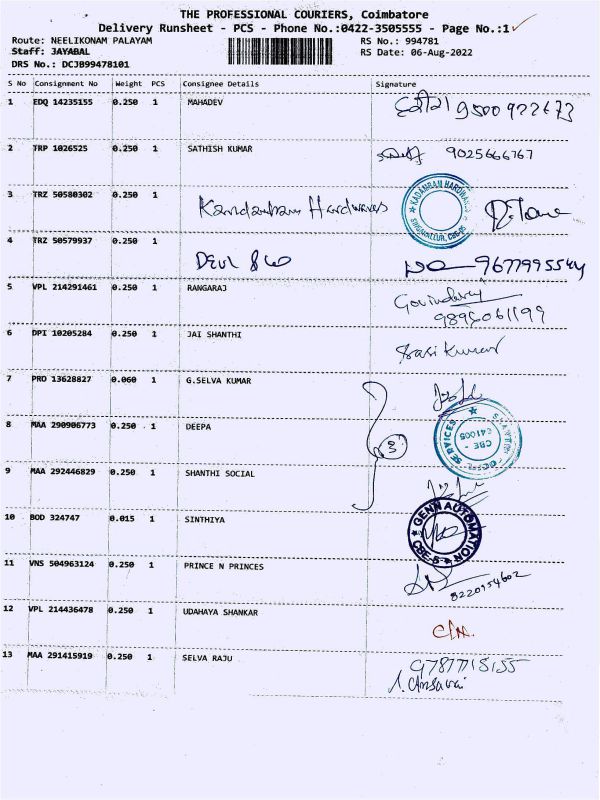 THE PROFESSIONAL COURIERS, Coimbatore
Delivery Runsheet - PCS - Phone No.:0422-3505555 - Page No.:1
Route: NEELIKONAM PALAYAM RS No.: 994781
Staff: JAYABAL RS Date: 06-Aug-2022
DRS No.: DCJB99478101
S No Consignment No Weight PCS Consignee Details Signature
1 EDQ 14235155 0.250 1 MAHADEV
2 TRP 1026525 0.250 1 SATHISH KUMAR 9025666767
3 TRZ 50580302 0.250 1 KADAMBAM HARDWARES
SINGANALLUR, CBE-05
4 TRZ 50579937 0.250 1 9677995544
5 VPL 214291461 0.250 1 RANGARAJ Govindaraj
9895061199
6 DPI 10205284 0.250 1 JAI SHANTHI Sasi Kumar
7 PRO 13628827 0.060 1 G.SELVA KUMAR
8 MAA 290906773 0.250 1 DEEPA 3 SERVICES
CBE -
641005
9 MAA 292446829 0.250 1 SHANTHI SOCIAL
10 BOD 324747 0.015 1 SINTHIYA GENN AUTOMATION
CBE-5
11 VNS 504963124 0.250 1 PRINCE N PRINCES 8220954602
12 VPL 214436478 0.250 1 UDAHAYA SHANKAR
13 MAA 291415919 0.250 1 SELVA RAJU 9787715155